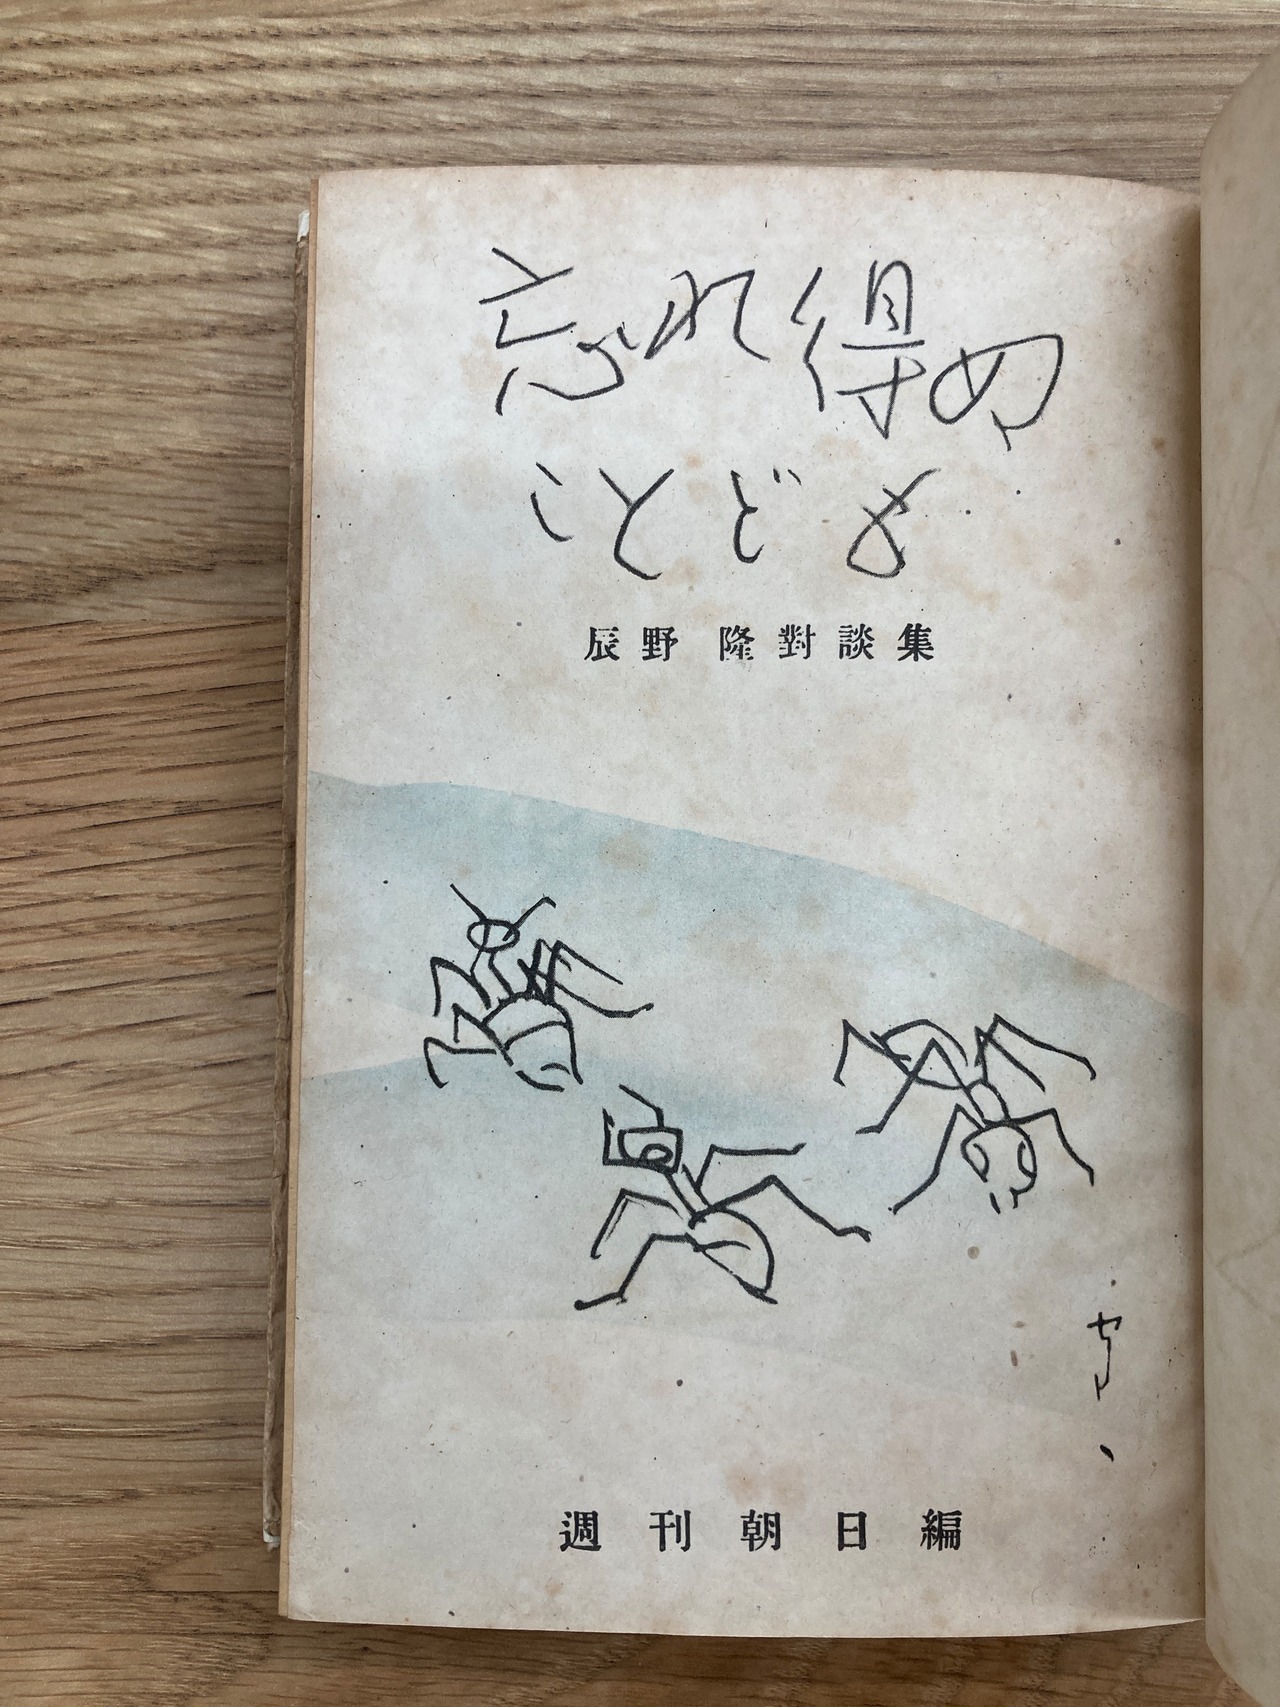 忘れ得ぬ
ことども
辰野 隆對談集
週刊朝日編